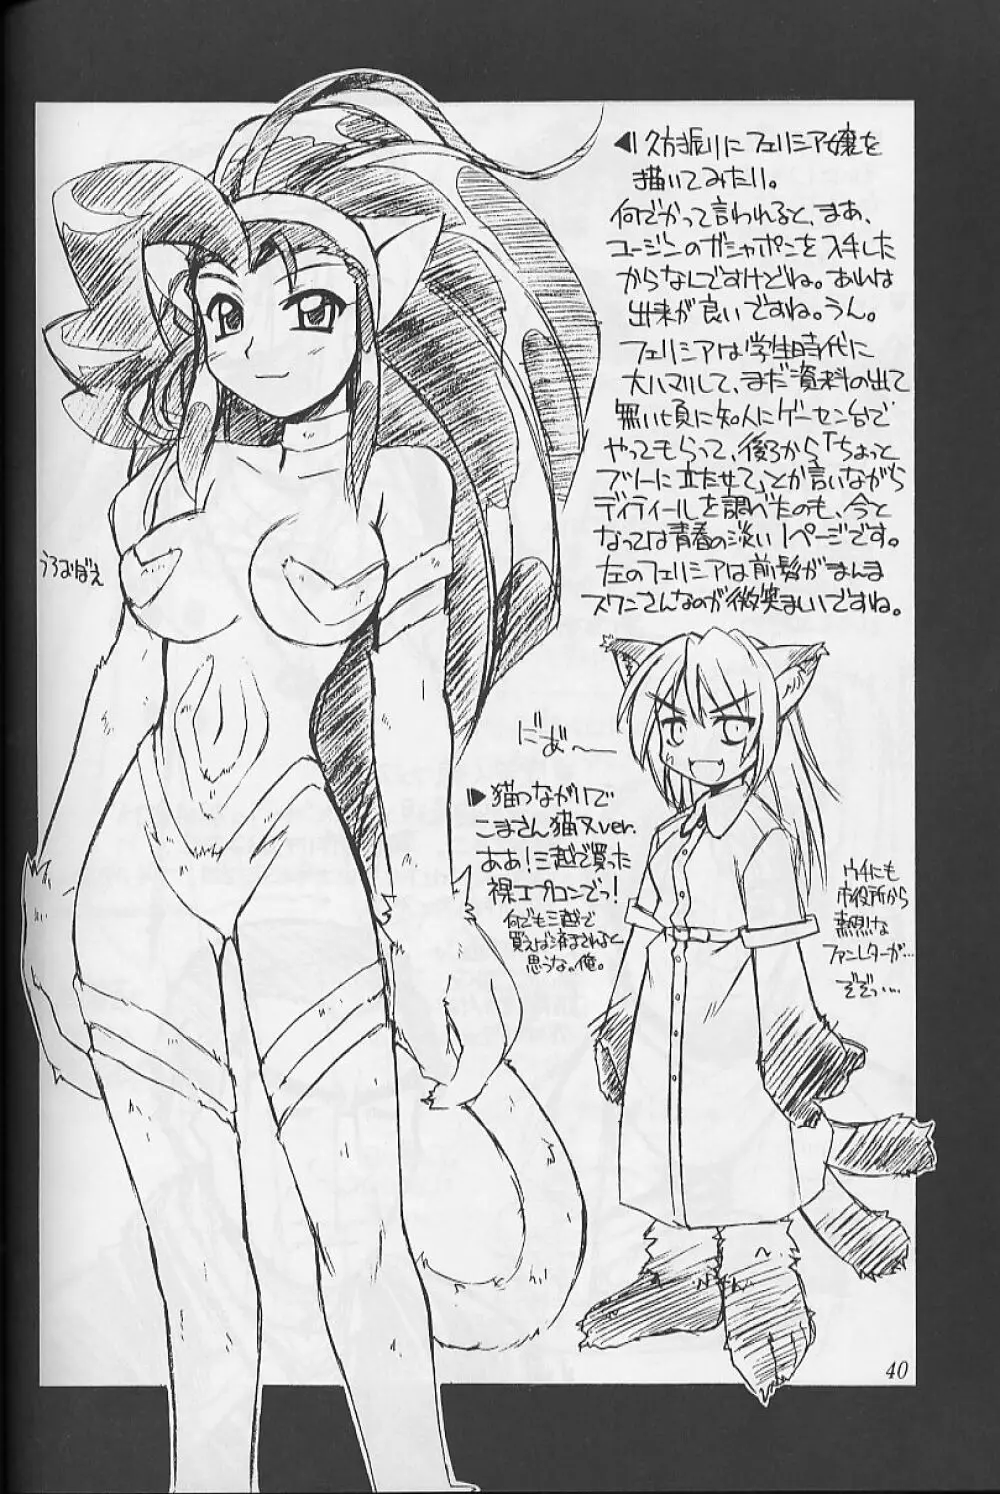 ◀久方振りにフェリシア嬢を
描いてみたり。
何でかって言われると、まあ、
ユージンのガシャポンを入手した
からなんですけどね。あれは
出来が良いですね。うん。
フェリシアは学生時代に
大ハマりして、まだ資料の出て
無い頃に知人にゲーセン台で
やってもらって、後ろから「ちょっと
ブリーに立たせて」とか言いながら
ディティールを調べたのも、今と
なっては青春の淡い1ページです。
左のフェリシアは前髪がまんま
スワンさんなのが微笑ましいですね。
うろおぼえ
にあ〜
▶猫つながりで
こまさん猫又ver.
ああ!三越で買った
裸エプロンでっ!
何でも三越で
買えば済まされると
思うな。俺。
ウチにも
市役所から
素烈な
ファンレターが…
ぞぞっ…
40